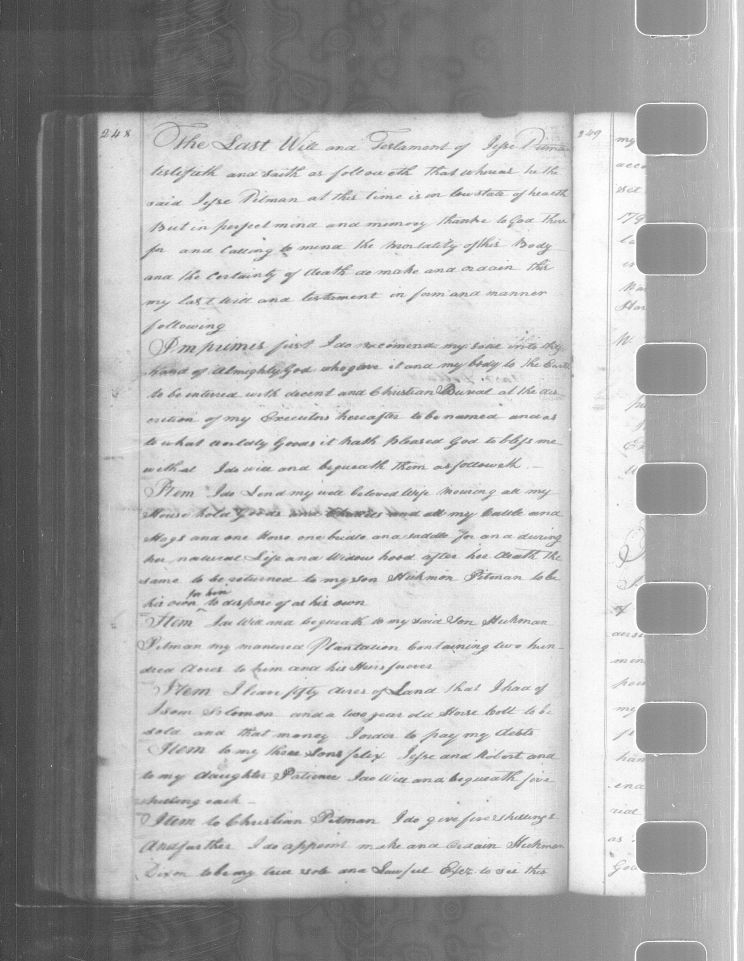 248
The Last Will and Testament of Jesse Pitman
testifieth and saith as followeth that whereas he the
said Jesse Pitman at this time is in low state of health
But in perfect mind and memory thanks to God there
for and Calling to mind the Mortality of his Body
and the Certainty of death do make and ordain this
my last Will and testament in form and manner
following
Imprimes first I do recomend my soul into the
hand of Almighty God who gave it and my body to the Earth
to be interred with decent and Christian Burial at the dis
cretion of my Executors hereafter to be named and as
to what worldly Goods it hath pleased God to bless me
withal I do will and bequeath them as followeth
Item I do Lend my well beloved Wife Mourning all my
House hold Goods and and all my Cattle and
Hogs and one Horse one bridle and saddle for and during
her natural Life and Widow hood after her death the
same to be returned to my son Hickmon Pitman to be
for him
his own to dispose of as his own
Item I do Will and bequeath to my said Son Hickman
Pitman my manured Plantation Containing two hun
dred Acres to him and his Heirs forever
Item I leave fifty Acres of Land that I had of
Isom Solomon and a two year old Horse Colt to be
sold and that money I order to pay my debts
Item to my three Sons felix Jesse and Robert and
to my daughter Patience I do Will and bequeath five
shilling each
Item to Christian Pitman I do give five shillings
And further I do appoint make and Ordain Hickmon
Dixon to be my true sole and Lawful Exer. to see this
249
my
set
179